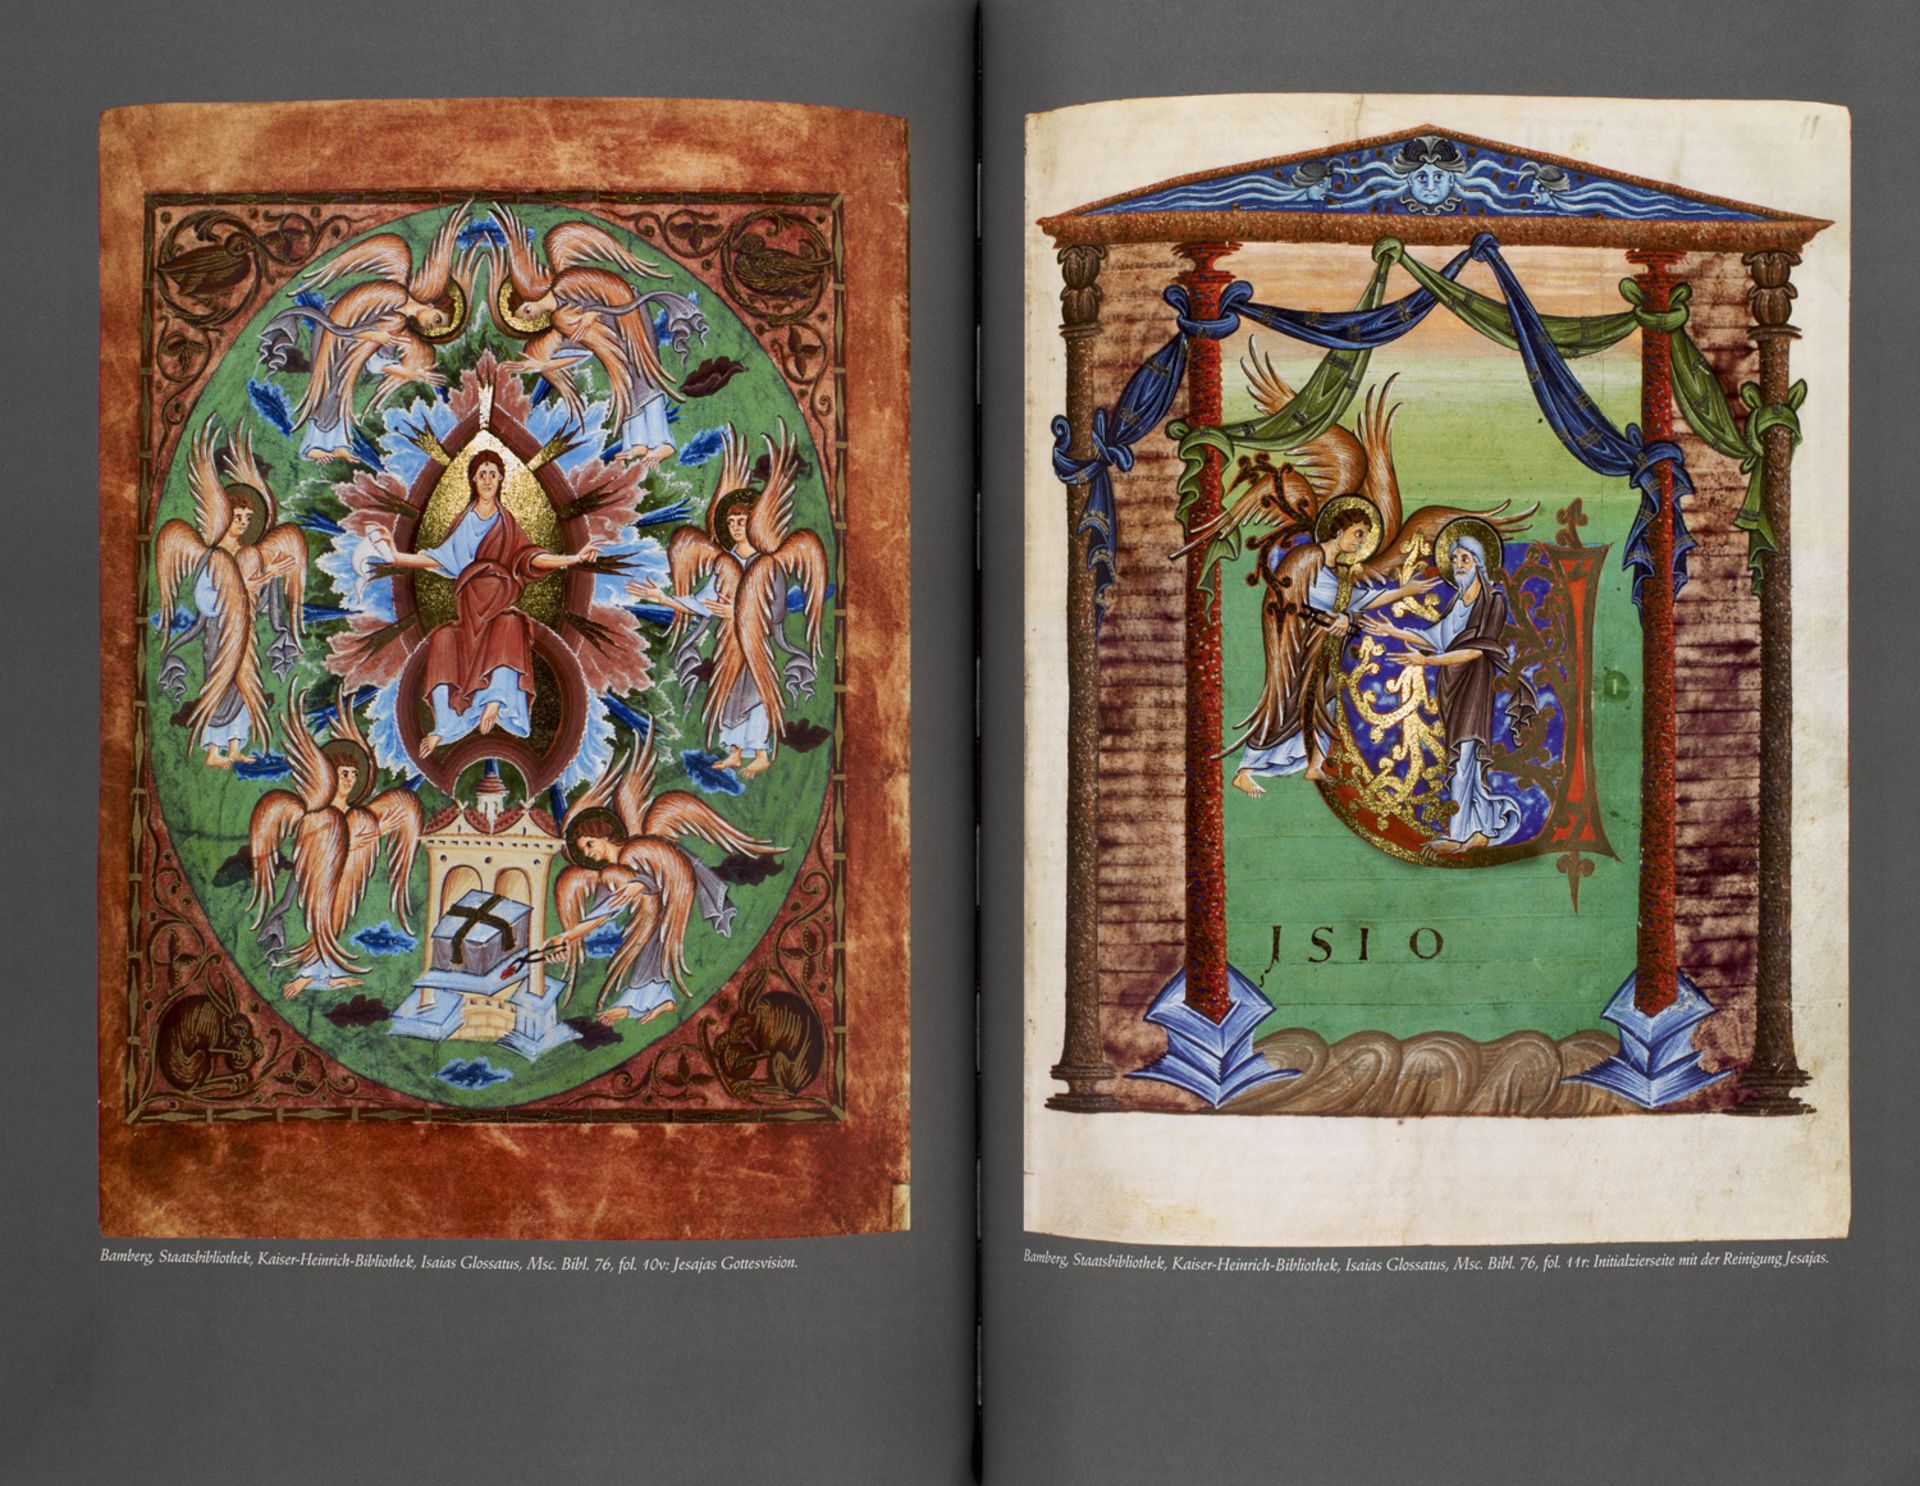 Bamberg, Staatsbibliothek, Kaiser-Heinrich-Bibliothek, Isaias Glossatus, Msc. Bibl. 76, fol. 10v: Jesajas Gottesvision.
11
D
JSIO
Bamberg, Staatsbibliothek, Kaiser-Heinrich-Bibliothek, Isaias Glossatus, Msc. Bibl. 76, fol. 11r: Initialzierseite mit der Reinigung Jesajas.